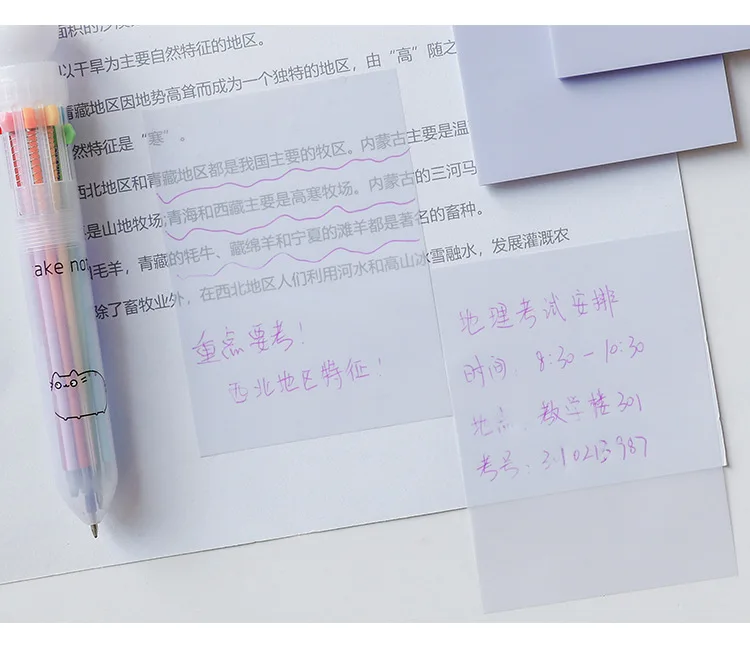 以干旱为主要自然特征的地区。
青藏地区因地势高耸而成为一个独特的地区，由“高”随之
然特征是“寒”。
西北地区和青藏地区都是我国主要的牧区。内蒙古主要是温
是山地牧场;青海和西藏主要是高寒牧场。内蒙古的三河马
毛羊，青藏的牦牛、藏绵羊和宁夏的滩羊都是著名的畜种。
除了畜牧业外，在西北地区人们利用河水和高山冰雪融水，发展灌溉农
ake no
重点要考！
西北地区特征！
地理考试安排
时间：8:30－10:30
地点：教学楼301
考号：310213987